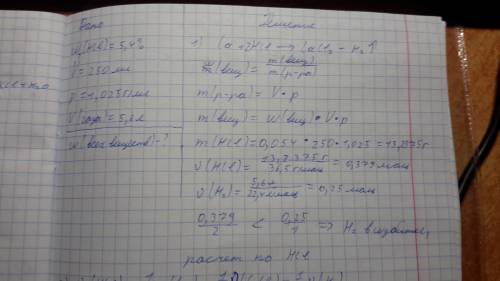 Дано
Решение
w(HCl) = 5,4%
V = 250 мл
ρ = 1,025 г/мл
V(газа) = 5,6 л
w(всех веществ) - ?
1) Ca + 2HCl → CaCl₂ - H₂↑
w(вещ) = m(вещ) / m(р-ра)
m(р-ра) = V · ρ
m(вещ) = w(вещ) · V · ρ
m(HCl) = 0,054 · 250 · 1,025 = 13,8375 г
ν(HCl) = 13,8375 г / 36,5 г/моль = 0,379 моль
ν(H₂) = 5,6 л / 22,4 л/моль = 0,25 моль
0,379 / 2 < 0,25 / 1 ⇒ H₂ в избытке,
расчет по HCl